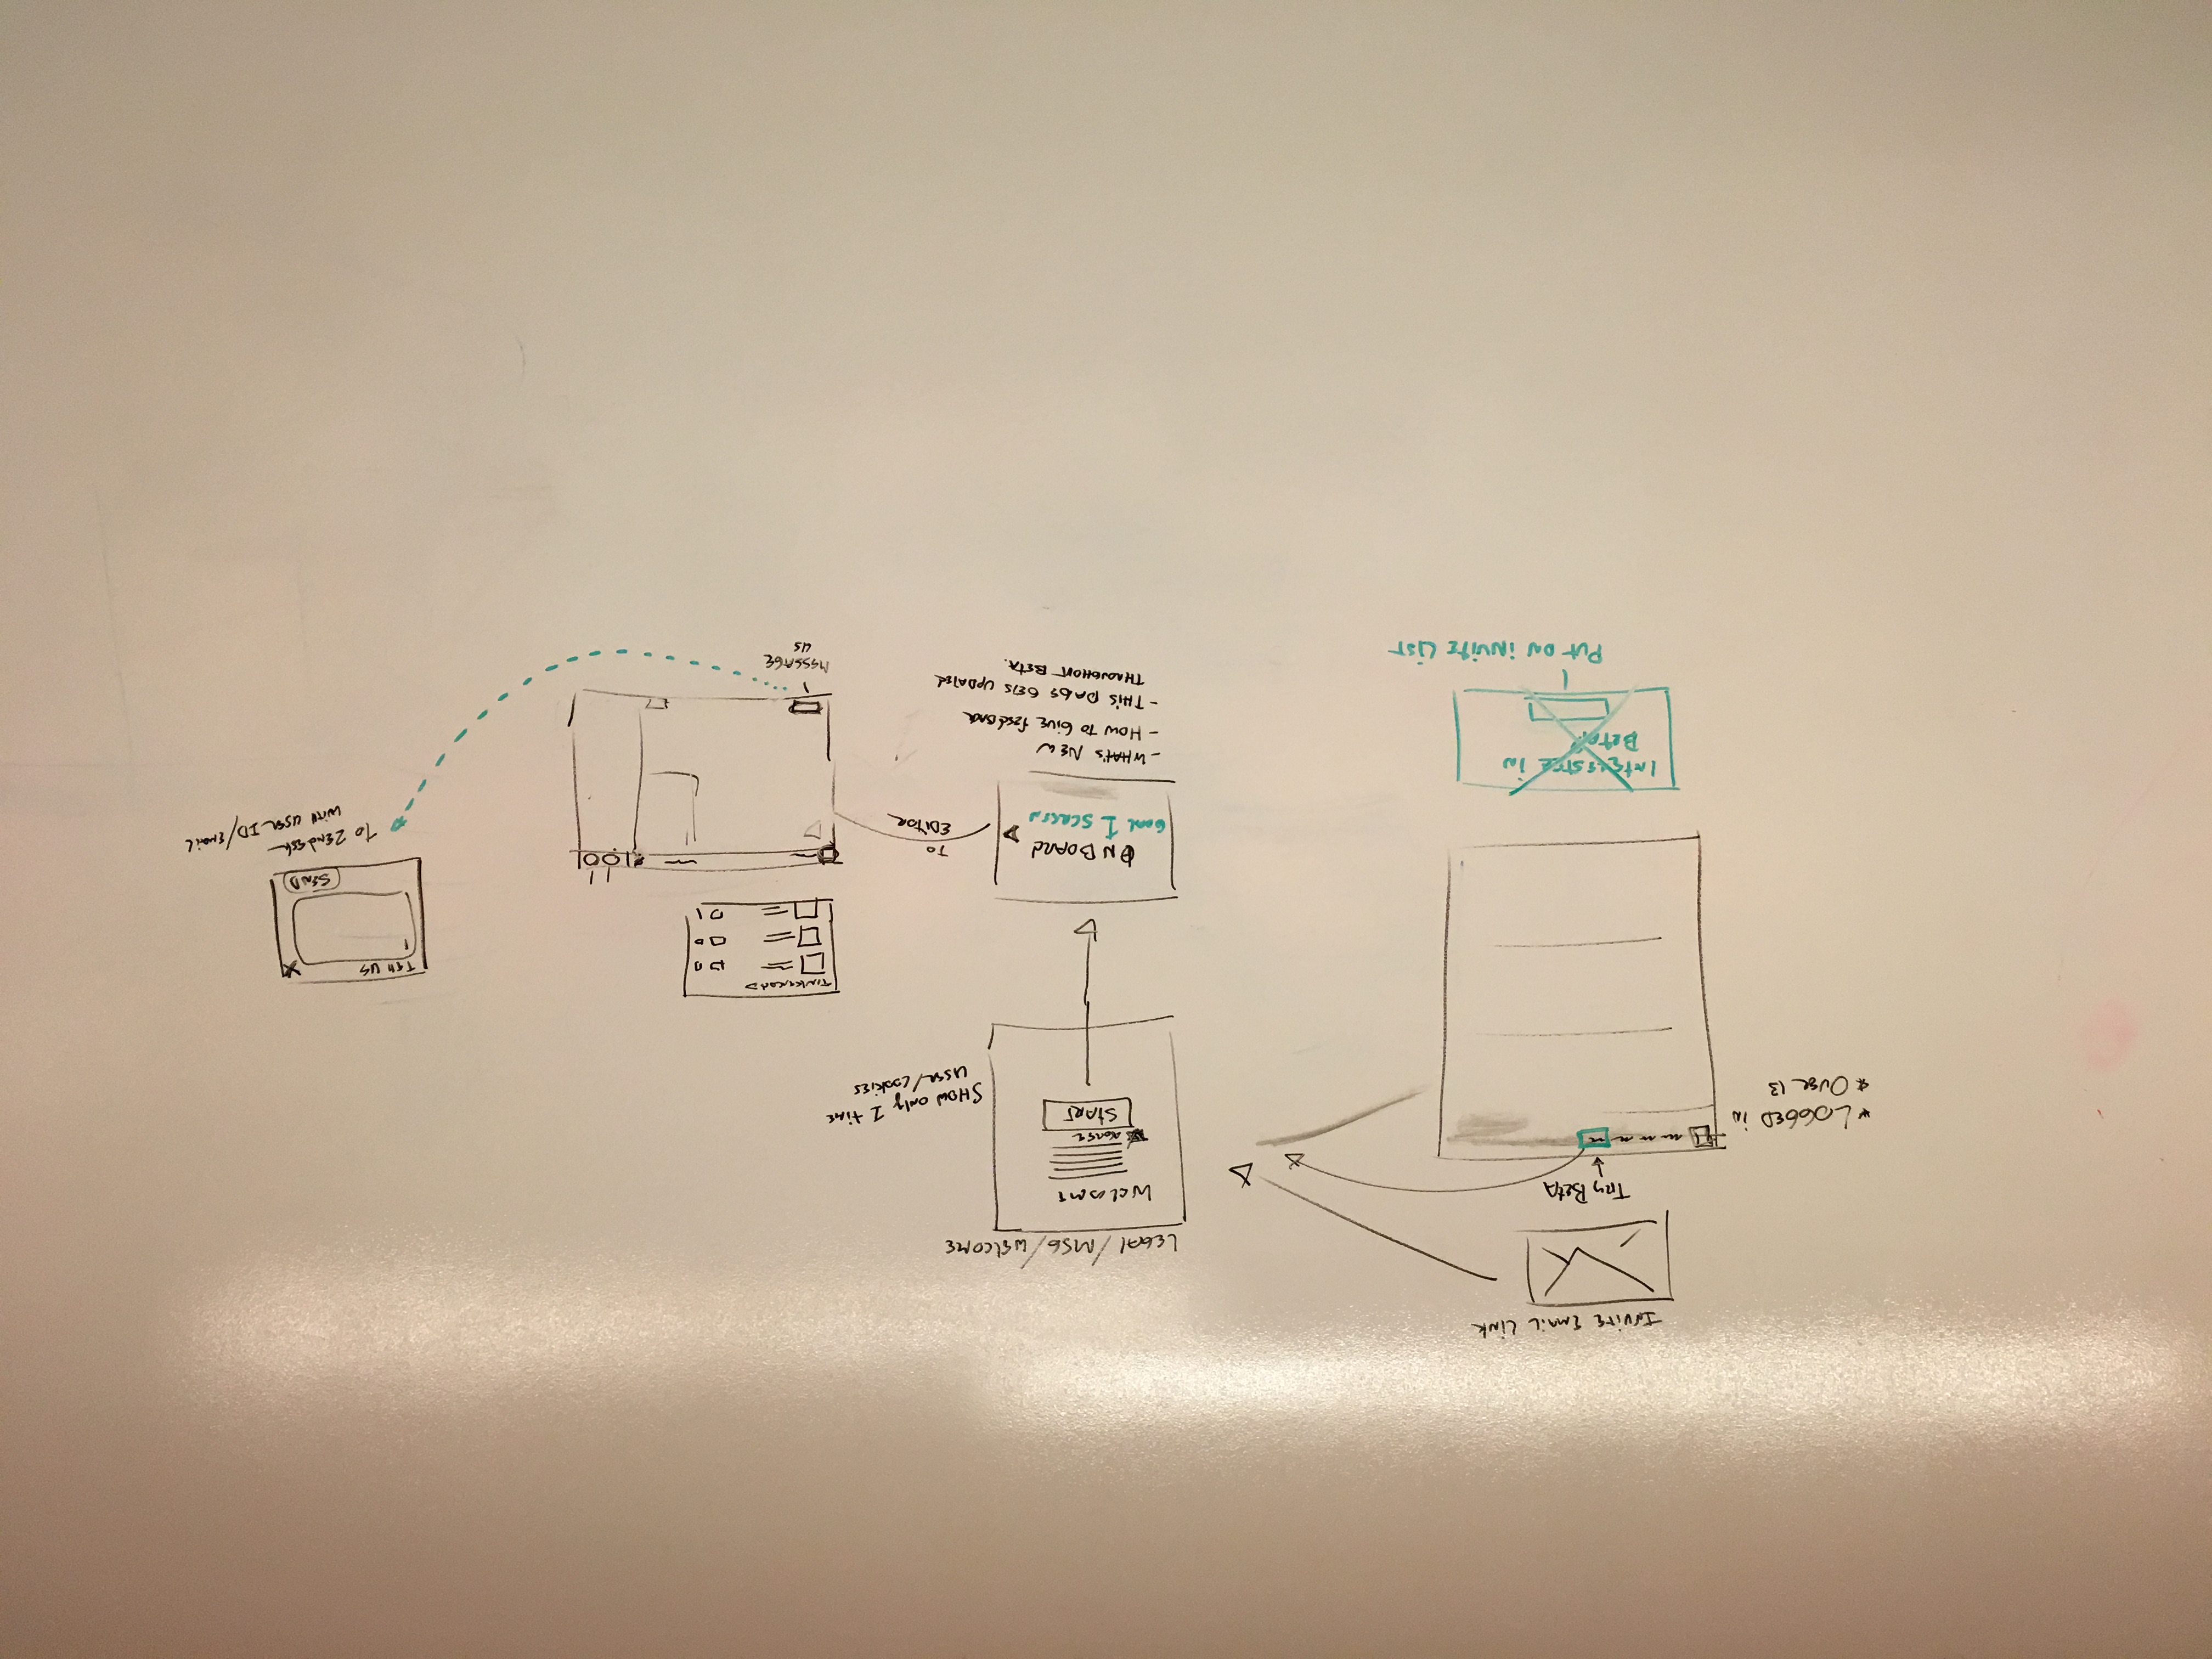 INVITE EMAIL LINK
TRY BETA
* LOGGED IN
* OVER 13
INTERESTED IN
BETA?
PUT ON INVITE LIST
LEGAL/MSG/WELCOME
WELCOME
AGREE
START
SHOW ONLY 1 TIME
USER/COOKIES
ON BOARD
GOAL 1 SCREEN
- WHAT'S NEW
- HOW TO GIVE FEEDBACK
- THIS PAGE GETS UPDATED
THROUGHOUT BETA.
TO
EDITOR
TINKERCAD
MESSAGE
US
TELL US
SEND
TO ZENDESK
WITH USER ID/EMAIL